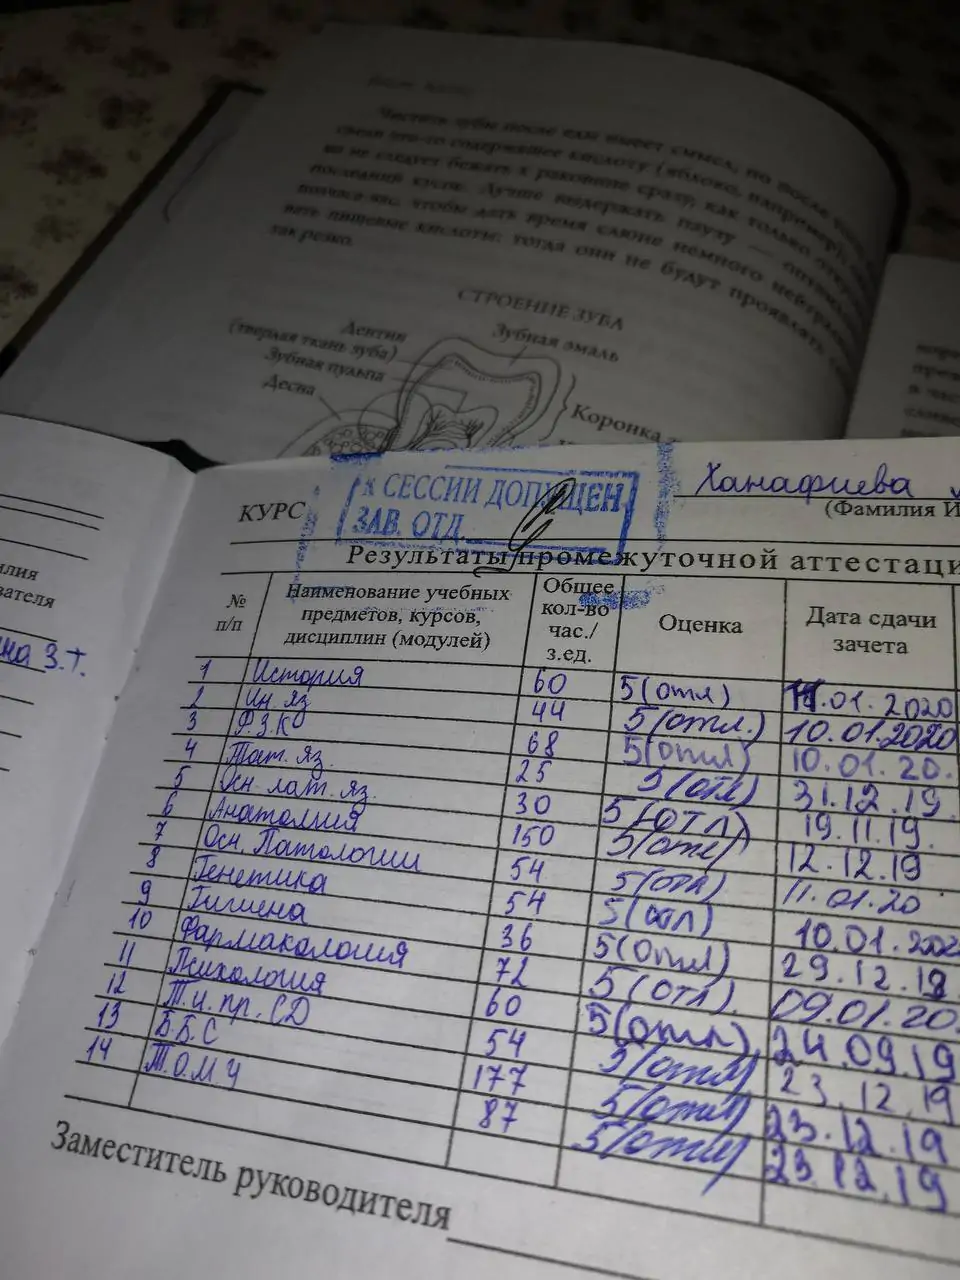 Чистить зубы после еды имеет смысл, но после
съели что-то содержащее кислоту (яблоко, например),
но не следует бежать к раковине сразу, как только
последний кусок. Лучше выдержать паузу —
чтобы дать время слюне немного
пищевые кислоты: тогда они не будут проявлять
так резко.
СТРОЕНИЕ ЗУБА
Дентин
(твердая ткань зуба)
Зубная эмаль
Зубная пульпа
Десна
Коронка
на З.Т.
КУРС
К СЕССИИ ДОПУЩЕН
ЗАВ. ОТД.
Ханафиева
(Фамилия И
Результаты промежуточной аттестаци
№ п/п Наименование учебных предметов, курсов, дисциплин (модулей) Общее кол-во час./ з.ед. Оценка Дата сдачи зачета
1 История 60 5(отл) 11.01.2020
2 Ин. яз 44 5(отл.) 10.01.2020
3 Ф.З.К 68 5(отл) 10.01.20.
4 Тат. яз. 25 5(отл) 31.12.19.
5 Осн. лат. яз. 30 5(отл) 19.11.19.
6 Анатомия 150 5(отл) 12.12.19
7 Осн. Патологии 54 5(отл) 11.01.20
8 Генетика 54 5(отл) 10.01.202
9 Гигиена 36 5(отл) 29.12.19
10 Фармакология 72 5(отл). 09.01.20.
11 Психология 60 5(отл) 24.09.19
12 Т.и.пр.СД 54 5(отл) 23.12.19
13 Б.Б.С 177 5(отл) 23.12.19
14 Т.О.М.Ч 87 5(отл) 23.12.19
Заместитель руководителя